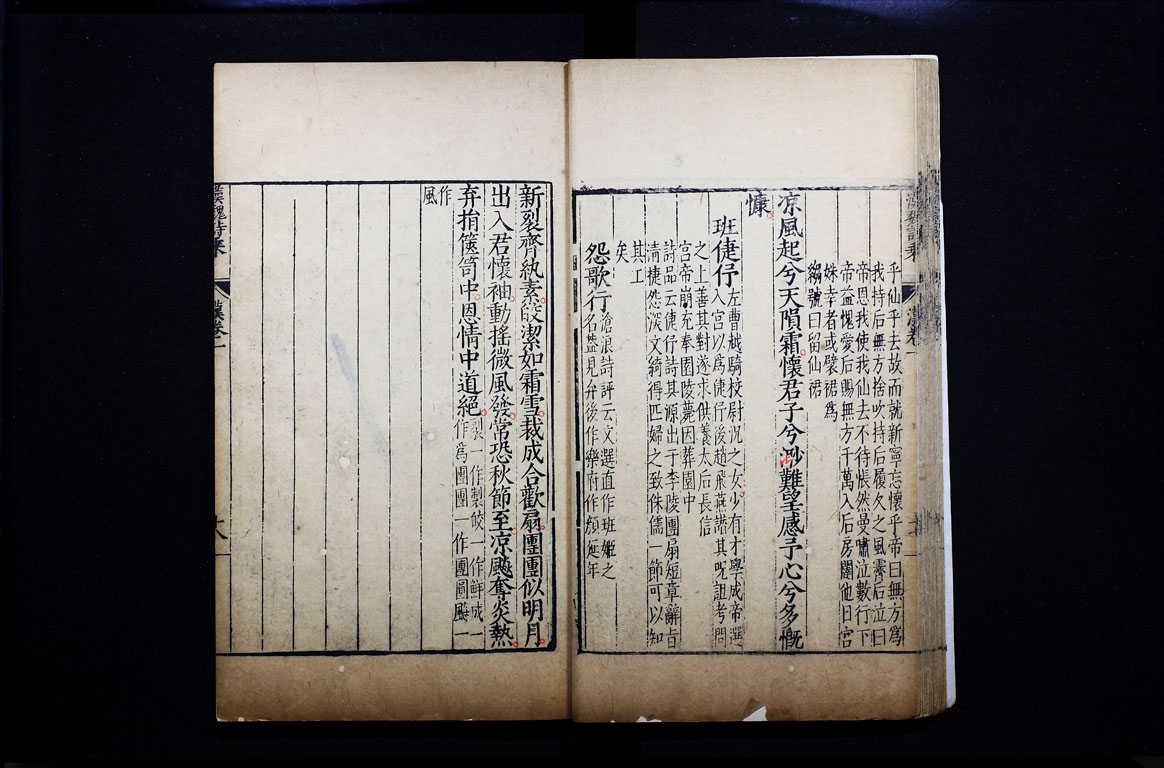 乎仙乎去故而就新寧忘懷乎帝曰無方爲
我持后無方捨吹持后履久之風霽后泣曰
帝恩我使我仙去不待悵然曼嘯泣數行下
帝益愧愛后賜無方千萬入后房闥他日宮
姝幸者或襞裙爲
縐號曰留仙裙
凉風起兮天隕霜懷君子兮渺難望感予心兮多慨
慷
班倢伃
左曹越騎校尉況之女少有才學成帝選
入宮以爲倢伃後趙飛燕譖其呪詛考問
之上善其對遂求供養太后長信
宮帝崩充奉園陵薨因葬園中
詩品云倢伃詩其源出于李陵團扇短章辭旨
清捷怨深文綺得匹婦之致侏儒一節可以知
其工
矣
怨歌行
滄浪詩評云文選直作班姬之
名葢見弁後作樂府作顏延年
新裂齊紈素皎潔如霜雪裁成合歡扇團團似明月
出入君懷袖動搖微風發常恐秋節至凉飈奪炎熱
弃捐篋笥中恩情中道絕
裂一作製皎一作鮮成一
作爲團團一作團圓飈一
作
風
漢魏詩乘
漢卷一
十八